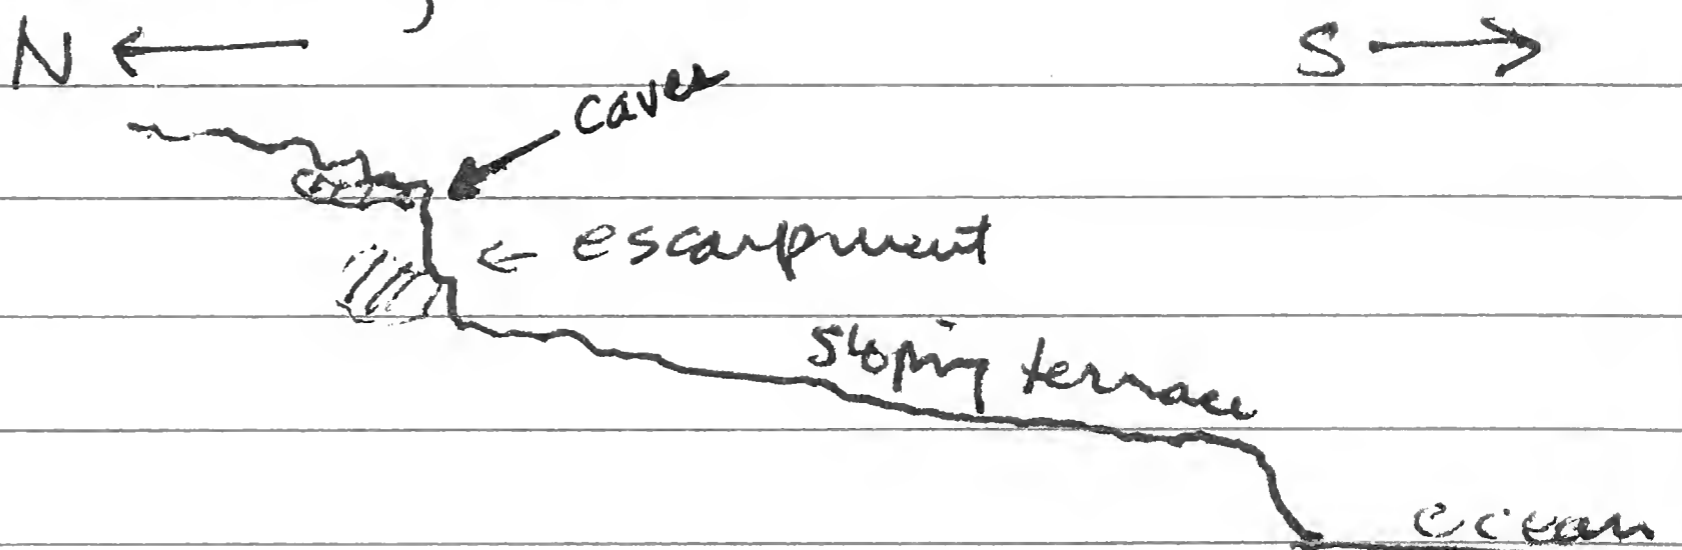 N S
caves
escarpment
sloping terrace
ocean